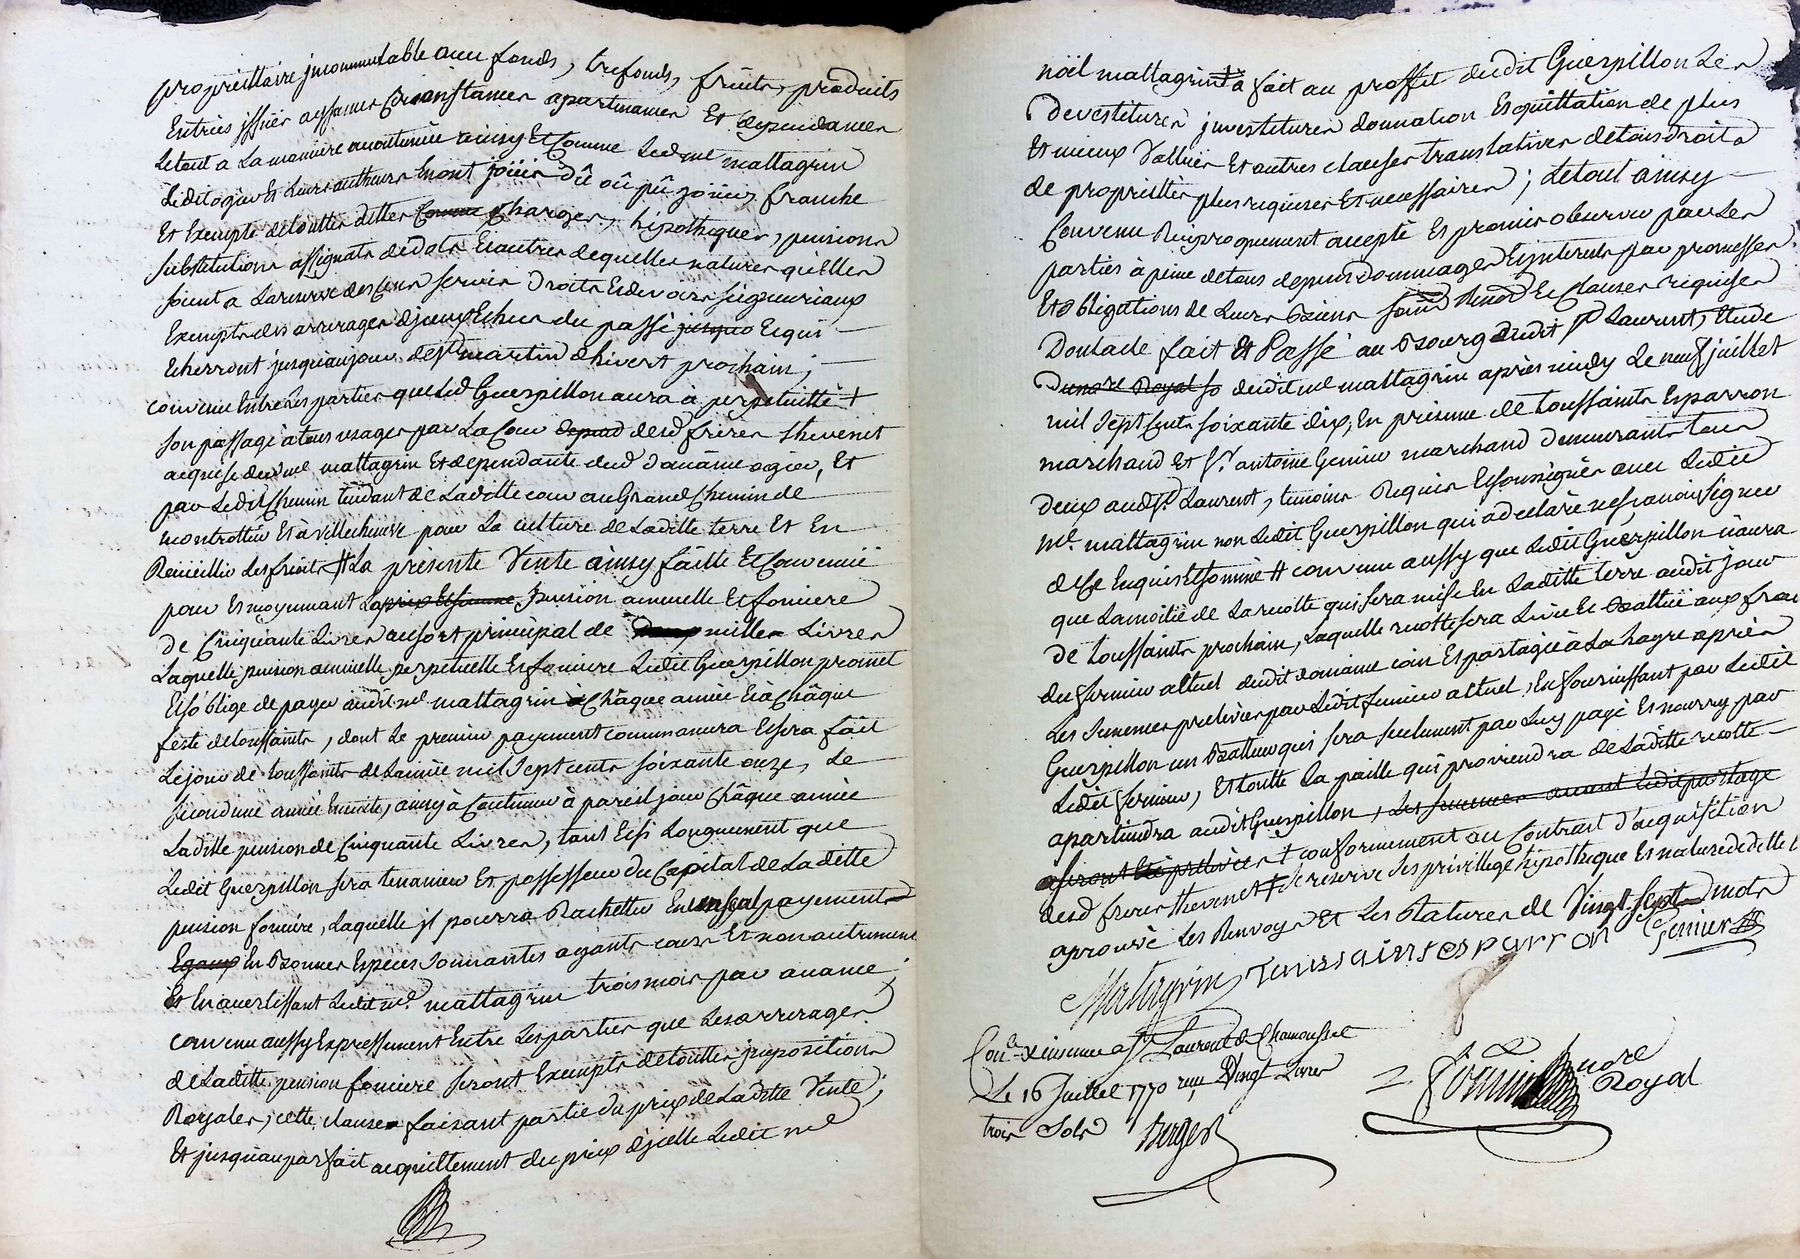 proprietaire jncommutable aux fonds, trefonds, fruits, produits
Entrées jssües aysances Circonstances apartenances Et dependances
Le tout a La maniere accoutumée ainsy Et Comme Led me mattagrin
Ledit ogier Et Leurs autheurs En ont joüis dû oû pû joüir, franche
Et Exempte de touttes dettes Charges, hipotheques, pensions
substitutions assignats de dots Et autres de quelles natures qu'elles
soient a La reserve des Cens servis Droits Et devoirs seigneuriaux
Exempts des arrerages d'jceux Echus du passé jusque Et qui
Echerront jusqu'au jour de st martin d'hivert prochain;
convenu Entre Les parties que Led Guerpillon aura à perpetuitté +
son passage a tous usages par La Cour desd freres thevenet
acquise dud me mattagrin Et dependante dud Domaine ogier, Et
par Ledit Chemin tendant de Laditte cour au Grand Chemin de
montrottier Et à villecheneve pour La culture de Laditte terre Et En
Recüeillir Les fruits # La présente Vente ainsy faitte Et Convenüe
pour Et moyennant La prix Et somme Pension annuelle Et fonciere
de Cinquante Livres au sort principal de milles Livres
Laquelle pension annuelle perpetuelle Et fonciere Ledit Guerpillon promet
Et s'oblige de payer audit me mattagrin à Châque année Et à Châque
feste de toussaints, dont Le premier payement commancera Et sera fait
Le jour de toussaints de L'année mil sept cents soixante onze, Le
second une année Ensuite, ainsy à Continuer à pareil jour Châque année
Laditte pension de Cinquante Livres, tant Et si Longuement que
Ledit Guerpillon sera tenancier Et possesseur du Capital de Laditte
pension fonciére, Laquelle jl pourra Rachetter En un seul payement
Egaux En Bonnes Especes sonnantes ayants cours Et non autrement
Et En avertissant Ledit me mattagrin trois mois par avance;
convenu aussy Expressement Entre Les parties que Les arrerages
de Laditte pension fonciere seront Exempts de touttes jmpositions
Royales, cette clause faisant partie du prix de La ditte Vente;
Et jusqu'au parfait acquittement du prix d'jcelle Ledit me
noël mattagrin a fait au proffit dudit Guerpillon Les
Devestitures jnvestitures donnation Et quittation de plus
Et mieux Vallües Et autres clauses translatives de tous Droits
de proprietté plus requises Et necessaires; Le tout ainsy
Convenu Reciproquement accepté Et promis observer par Les
parties à peine de tous depens Dommages Et jnterets par promesses
Et obligations de Leurs Biens soumis Renond Et Clauses requises
Dont acte fait Et Passé au Bourg dudit st Laurent, Etude
Du nore Royal so dudit me mattagrin après midy Le neuf juillet
mil sept Cents soixante dix, En présence de toussaints Esparron
marchand Et Sr antoine Genier marchand demeurants tous
deux aud st Laurent, temoins Requis Et soussignés avec Ledit
me mattagrin non Ledit Guerpillon qui a declaré ne sçavoir signer
de Ce Enquis Et sommé # convenu aussy que Ledit Guerpillon n'aura
que La moitié de La recolte qui sera mise En Laditte terre audit jour
de toussaints prochain, Laquelle recolte sera Liée Et Battüe aux frais
du fermier actuel dudit domaine Et partagée à La hayre après
Les semences prelevées par Ledit fermier actuel, En fournissant par Ledit
Guerpillon un Batteur qui sera seulement par Luy payé Et nourry par
Ledit fermier, Et toutte La paille qui proviendra de Laditte recolte
apartiendra audit Guerpillon, Les semences avant Ledit partage
prelevées + conformement au Contract d'acquisition
desd freres thevenet + se reserve Ses privillege hipotheque Et nature de dette
aprouvé Les Renvoys Et Les Ratures de Vingt Sept mots
Mattagrin Toussaint esparron Genier
Conle Xinsinué a St Laurent de Chamousset
Le 16 Juillet 1770 reçu Vingt Livres
trois Sols Burger
nore
Royal